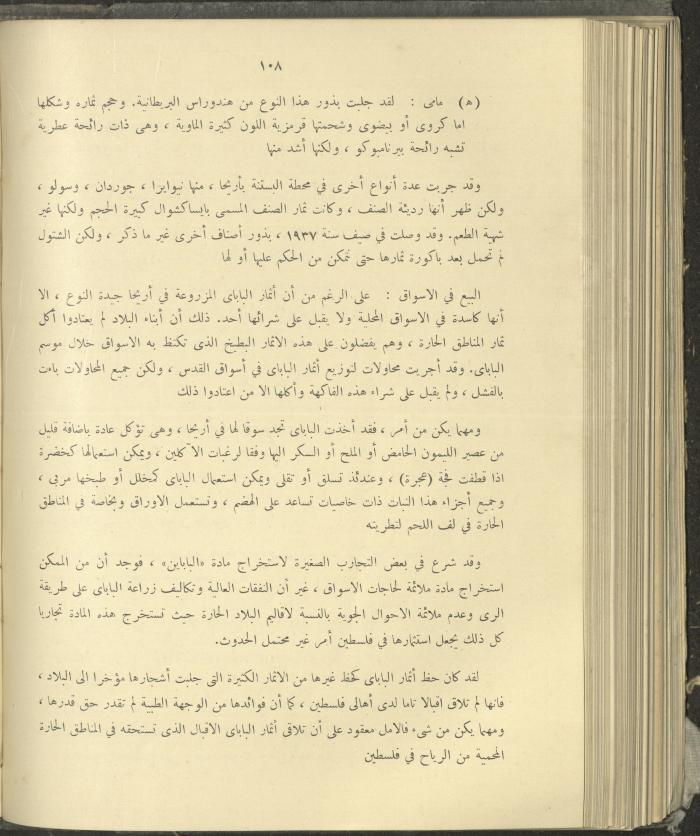 ١٠٨
(ه) مامى : لقد جلبت بذور هذا النوع من هندوراس البريطانية. وحجم ثماره وشكلها
اما كروى أو بيضوى وشحمتها قرمزية اللون كثيرة الماوية ، وهى ذات رائحة عطرية
تشبه رائحة بيرنامبوكو ، ولكنها أشد منها
وقد جربت عدة أنواع أخرى في محطة البستنة بأريحا ، منها نيوايرا ، جوردان ، وسولو ،
ولكن ظهر أنها رديئة الصنف ، وكانت ثمار الصنف المسمى بايساكشوال كبيرة الحجم ولكنها غير
شهية الطعم. وقد وصلت في صيف سنة ١٩٣٧ ، بذور أصناف أخرى غير ما ذكر ، ولكن الشتول
لم تحمل بعد باكورة ثمارها حتى تمكن من الحكم عليها أو لها
البيع في الاسواق : على الرغم من أن أثمار الباباى المزروعة في أريحا جيدة النوع ، الا
أنها كاسدة في الاسواق المحلية ولا يقبل على شرائها أحد. ذلك أن أبناء البلاد لم يعتادوا أكل
ثمار المناطق الحارة ، وهم يفضلون على هذه الاثمار البطيخ الذى تكتظ به الاسواق خلال موسم
الباباى. وقد أجريت محاولات لتوزيع أثمار الباباى في أسواق القدس ، ولكن جميع المحاولات باءت
بالفشل ، ولم يقبل على شراء هذه الفاكهة وأكلها الا من اعتادوا ذلك
ومهما يكن من أمر ، فقد أخذت الباباى تجد سوقا لها في أريحا ، وهى تؤكل عادة باضافة قليل
من عصير الليمون الحامض أو الملح أو السكر اليها وفقا لرغبات الآكلين ، ويمكن استعمالها كخضرة
اذا قطفت فجة (عجرة) ، وعندئذ تسلق أو تقلى ويمكن استعمال الباباى كمخلل أو طبخها مربى ،
وجميع أجزاء هذا النبات ذات خاصيات تساعد على الهضم ، وتستعمل الاوراق وبخاصة في المناطق
الحارة في لف اللحم لتطريته
وقد شرع في بعض التجارب الصغيرة لاستخراج مادة «الباباين» ، فوجد أن من الممكن
استخراج مادة ملائمة لحاجات الاسواق ، غير أن النفقات العالية وتكاليف زراعة الباباى على طريقة
الرى وعدم ملائمة الاحوال الجوية بالنسبة لاقاليم البلاد الحارة حيث تستخرج هذه المادة تجاريا
كل ذلك يجعل استثمارها في فلسطين أمر غير محتمل الحدوث.
لقد كان حظ أثمار الباباى كحظ غيرها من الاثمار الكثيرة التى جلبت أشجارها مؤخرا الى البلاد ،
فانها لم تلاق اقبالا تاما لدى أهالى فلسطين ، كما أن فوائدها من الوجهة الطبية لم تقدر حق قدرها ،
ومهما يكن من شىء فالامل معقود على أن تلاقى أثمار الباباى الاقبال الذى تستحقه في المناطق الحارة
المحمية من الرياح في فلسطين